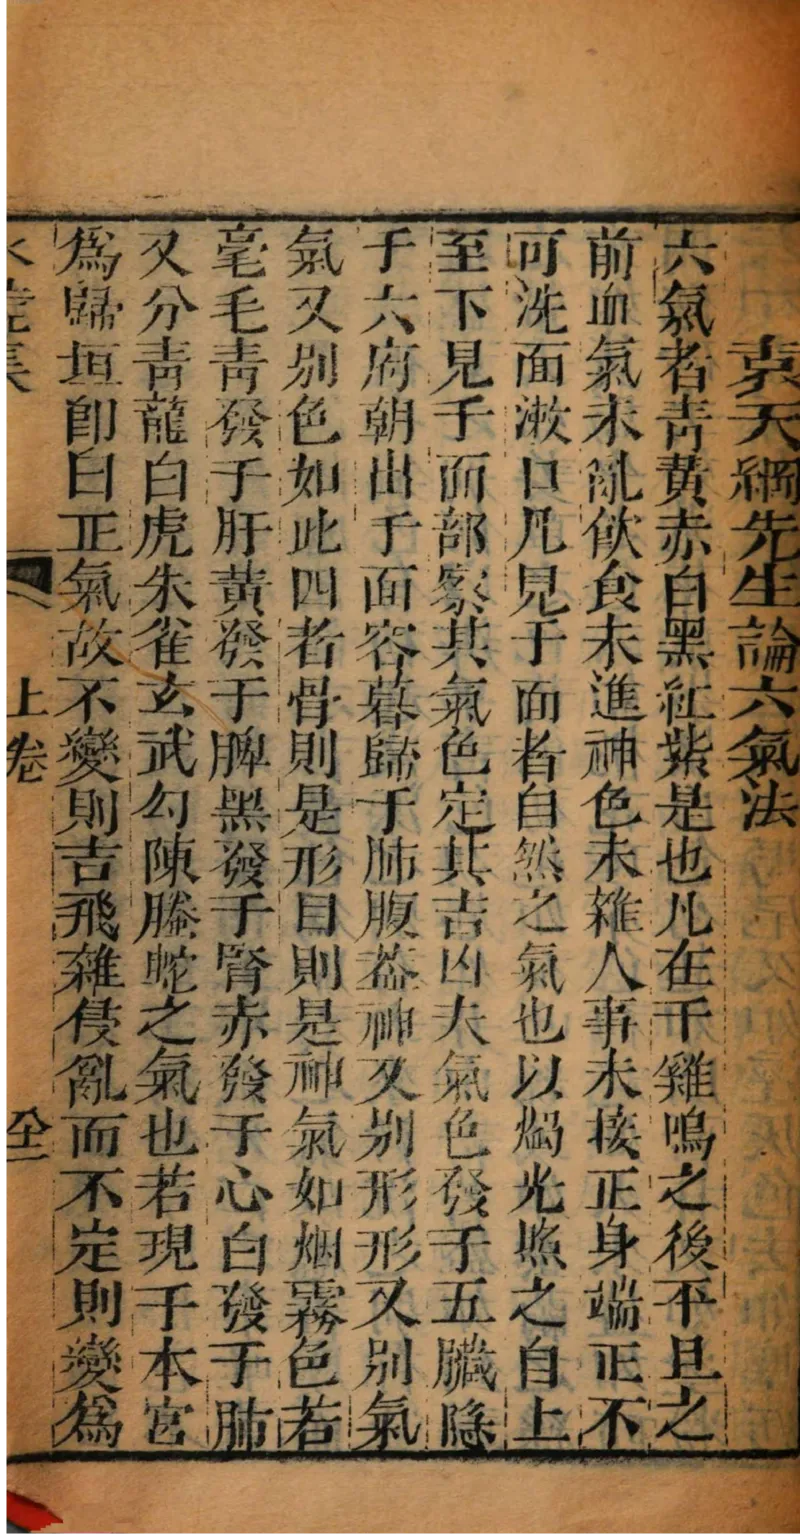 袁天綱先生論六氣法
六氣者靑黃赤白黑紅紫是也凡在于雞鳴之後平旦之
前血氣未亂飲食未進神色未雜人事未接正身端正不
可洗面漱口凡見于面者自然之氣也以燭光照之自上
至下見于面部察其氣色定其吉凶夫氣色發于五臟隱
于六府朝出于面容暮歸于肺腹葢神又别形形又别氣
氣又别色如此四者骨則是形目則是神氣如烟霧色若
毫毛靑發于肝黃發于脾黑發于腎赤發于心白發于肺
又分靑龍白虎朱雀玄武勾陳螣蛇之氣也若現于本宮
爲歸垣卽曰正氣故不變則吉飛雜侵亂而不定則變爲
上卷